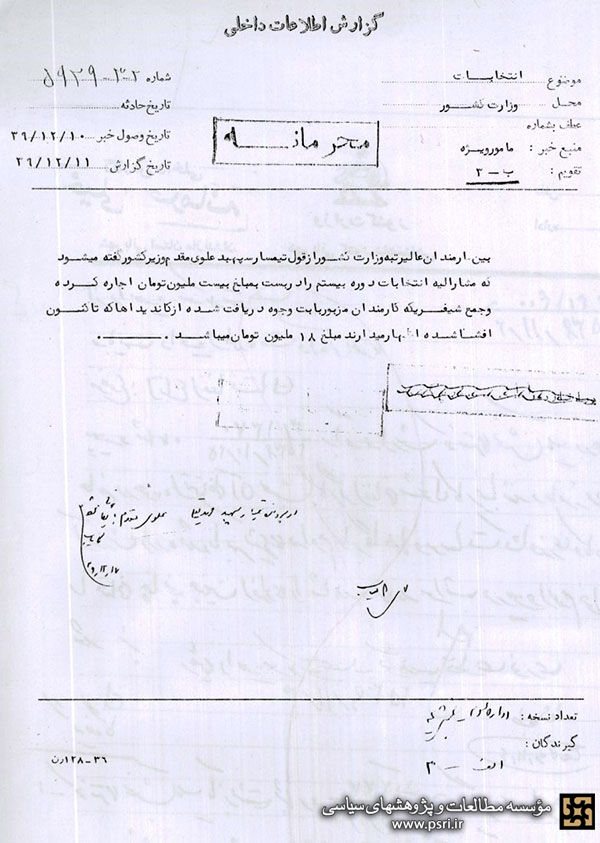 گزارش اطلاعات داخلی
موضوع انتخابات
محل وزارت کشور
عطف بشماره
منبع خبر : مامور ویژه
تقویم : ب – ۲
شماره
تاریخ حادثه
تاریخ وصول خبر ۳۹/۱۲/۱۰
تاریخ گزارش ۳۹/۱۲/۱۱
محرمانه
بین کارمندان عالیرتبه وزارت کشور از قول تیمسار سپهبد علوی مقدم وزیر کشور گفته میشود
که مشارالیه انتخابات دوره بیستم را دربست بمبلغ بیست ملیون تومان اجاره کرده
و جمع شیفریکه کارمندان مزبور بابت وجوه دریافت شده از کاندیداها که تاکنون
افشا شده اظهار میدارند مبلغ ۱۸ ملیون تومان میباشد .
تعداد نسخه :
گیرندگان :
الف – ۳
۳۶–۱۲۸ رن
مؤسسه مطالعات و پژوهشهای سیاسی
www.psri.ir